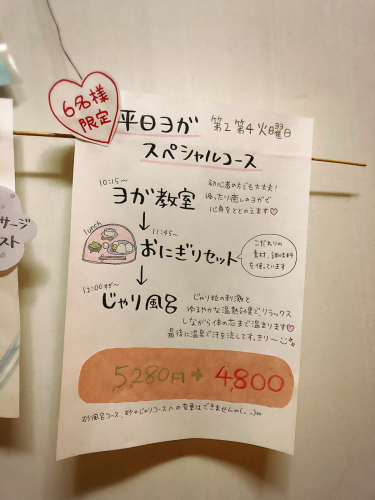 6名様
限定
平日ヨガ 第2 第4 火曜日
スペシャルコース
10:15〜
ヨガ教室
初心者の方でも大丈夫!
ゆったり癒しのヨガで
心身をととのえます♡
↓
11:45〜
lunch
おにぎりセット
こだわりの
素材、調味料
を使っています
↓
じゃり風呂
じゃり粒の刺激と
ゆるやかな温熱効果で、リラックス
しながら体の芯まで温まります♡
最後に温泉で汗を流して、すっきり〜
5280円→4,800
砂風呂コース、砂+じゃりコースへの変更はできませんm(._.)m
サージ
スト